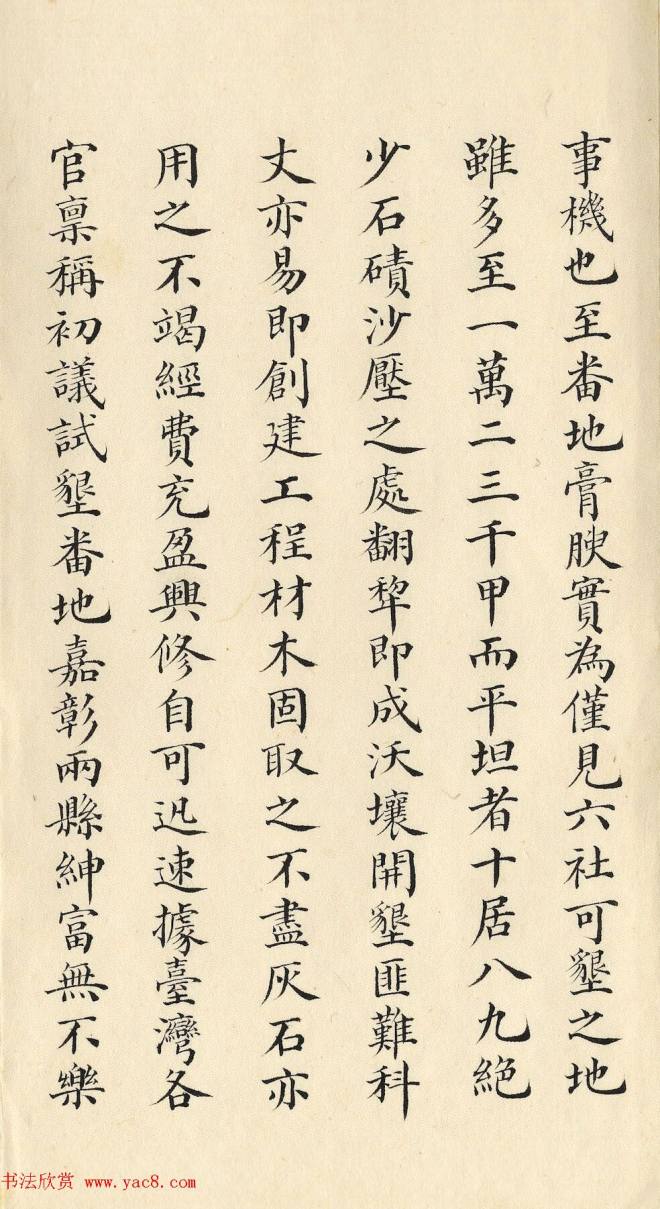 事機也至番地膏腴實為僅見六社可墾之地
雖多至一萬二三千甲而平坦者十居八九絕
少石磧沙壓之處翻犂即成沃壤開墾匪難科
丈亦易即創建工程材木固取之不盡灰石亦
用之不竭經費充盈興修自可迅速據臺灣各
官稟稱初議試墾番地嘉彰兩縣紳富無不樂
书法欣赏 www.yac8.com